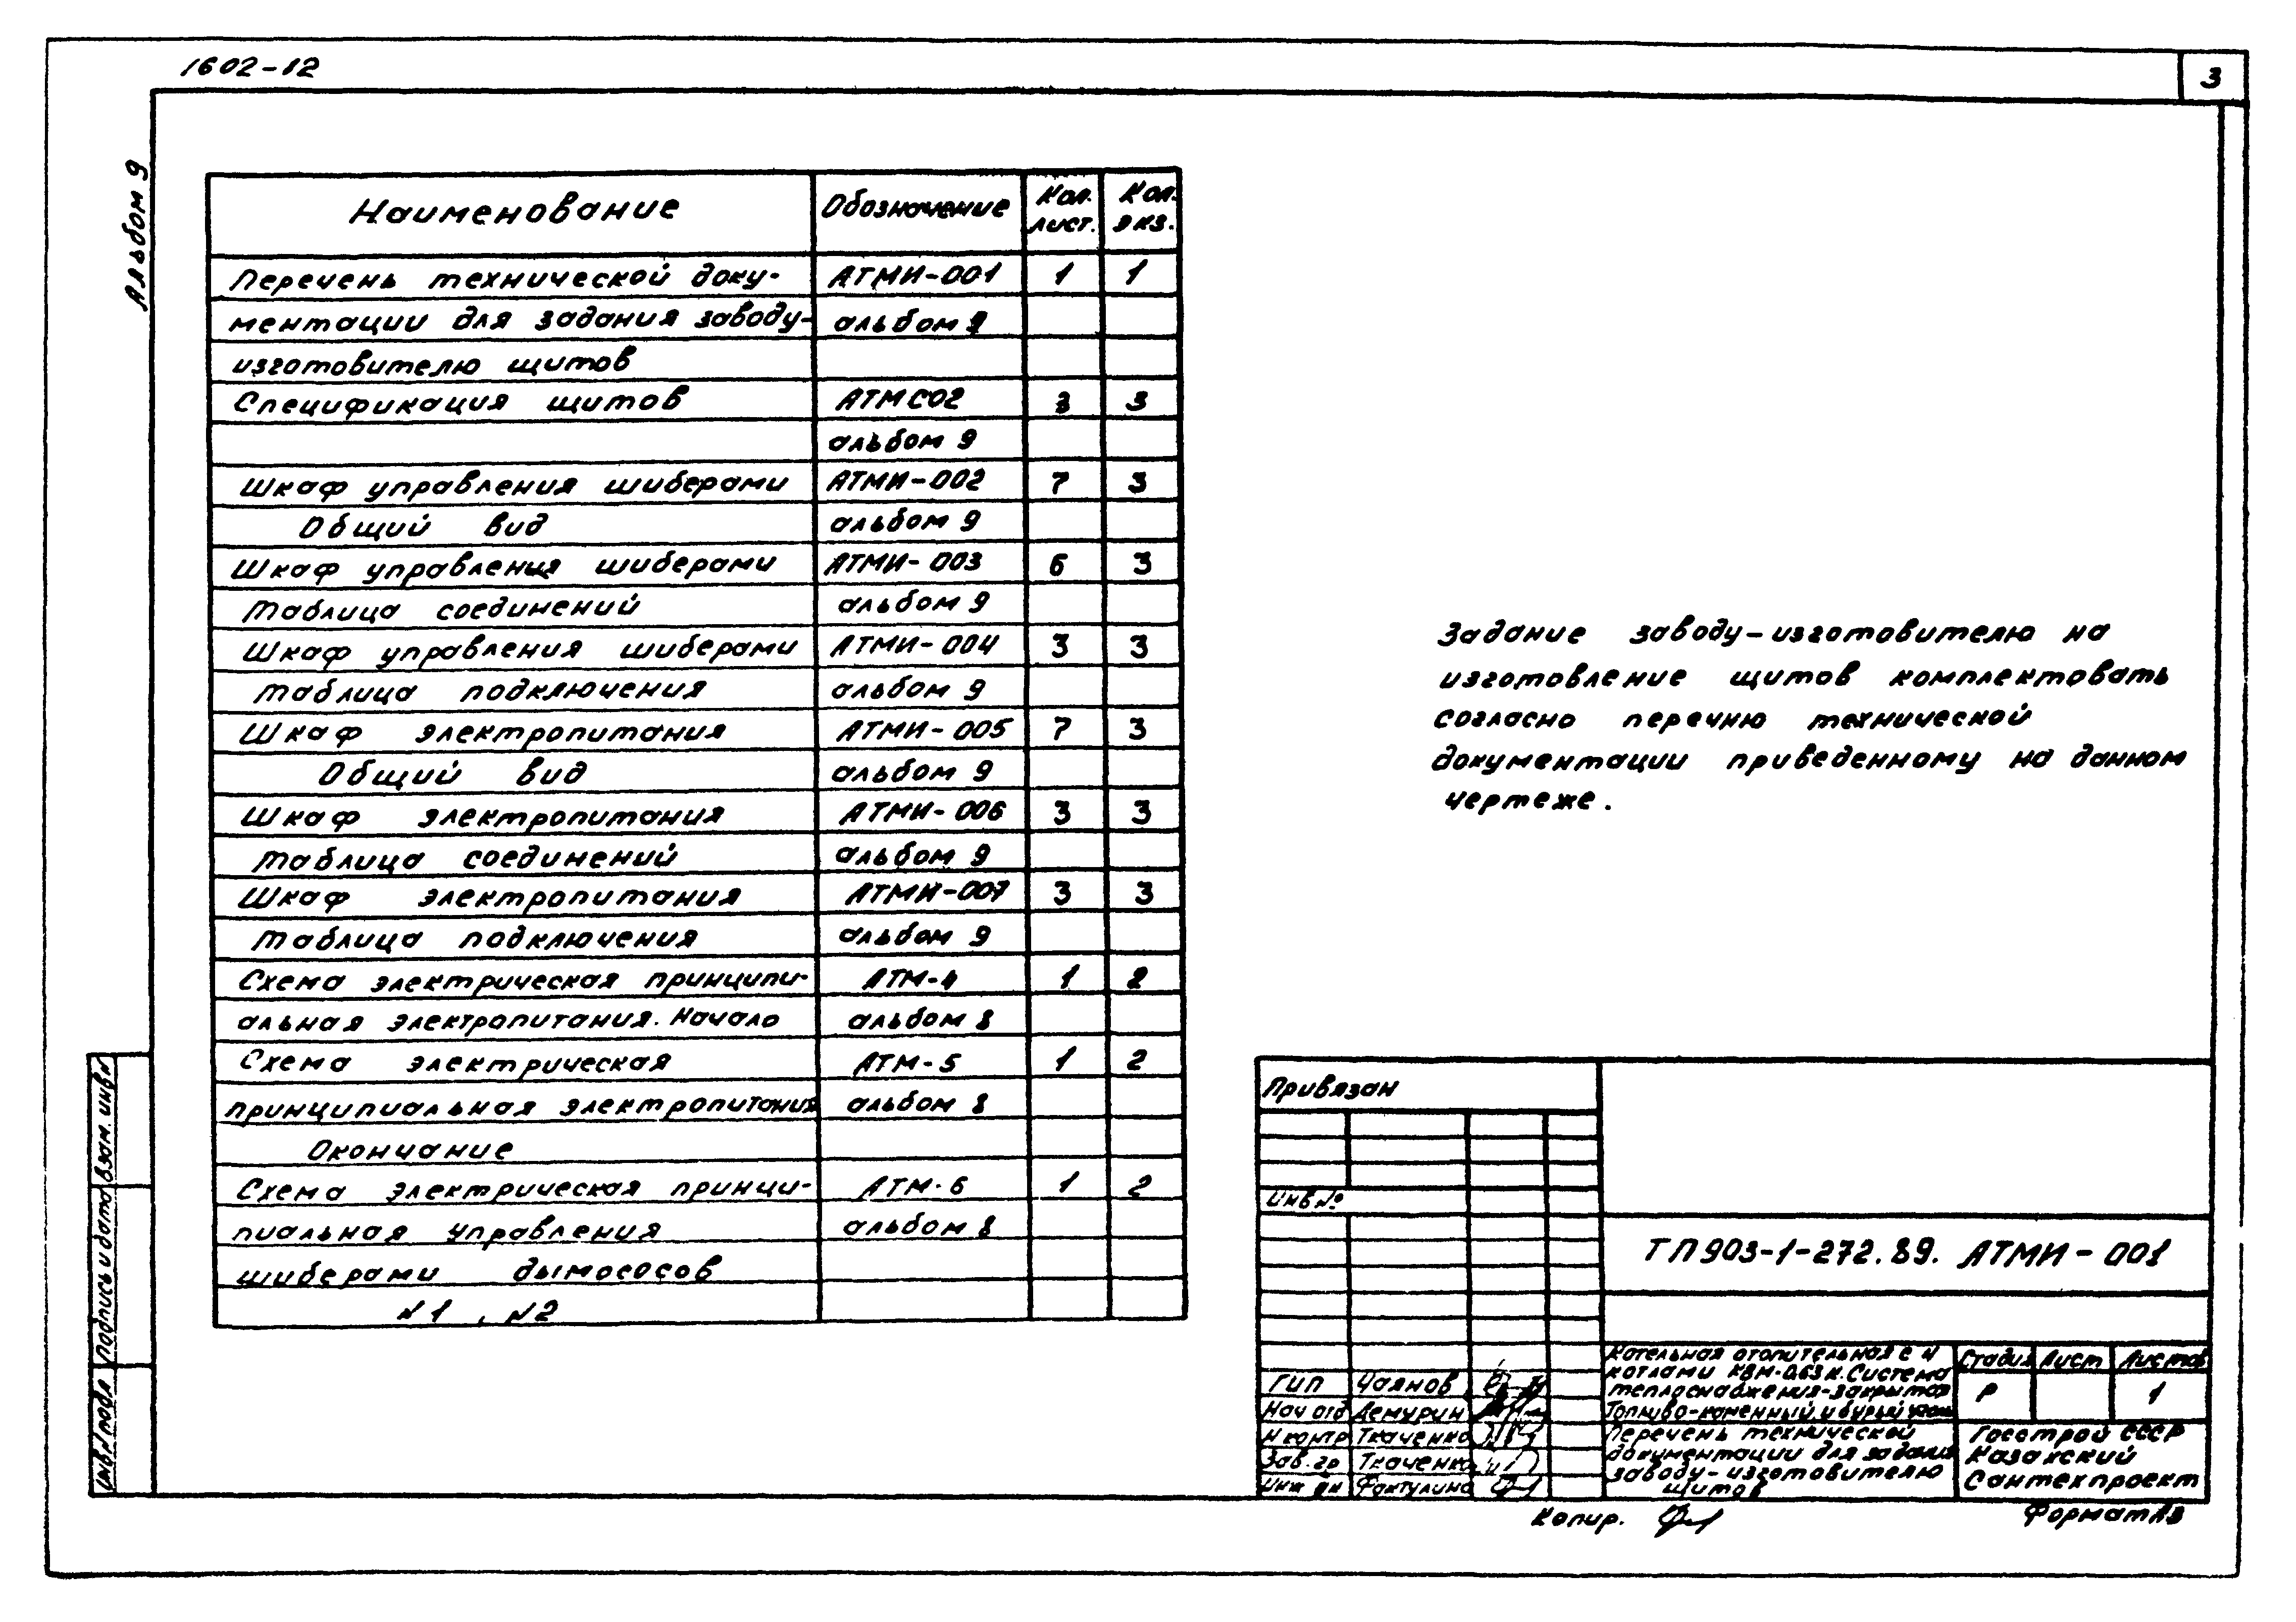 1602-12
3
Альбом 9
Наименование Обозначение Кол. лист. Кол. экз.
Перечень технической доку- АТМИ-001 1 1
ментации для задания заводу- альбом 9
изготовителю щитов
Спецификация щитов АТМ СО2 3 3
альбом 9
Шкаф управления шиберами АТМИ-002 7 3
Общий вид альбом 9
Шкаф управления шиберами АТМИ-003 6 3
Таблица соединений альбом 9
Шкаф управления шиберами АТМИ-004 3 3
Таблица подключения альбом 9
Шкаф электропитания АТМИ-005 7 3
Общий вид альбом 9
Шкаф электропитания АТМИ-006 3 3
Таблица соединений альбом 9
Шкаф электропитания АТМИ-007 3 3
Таблица подключения альбом 9
Схема электрическая принципи- АТМ-4 1 2
альная электропитания. Начало альбом 8
Схема электрическая АТМ-5 1 2
принципиальная электропитания альбом 8
Окончание
Схема электрическая принци- АТМ-6 1 2
пиальная управления альбом 8
шиберами дымососов
№1, №2
Задание заводу-изготовителю на
изготовление щитов комплектовать
согласно перечню технической
документации приведенному на данном
чертеже.
Привязан
Инв №
ТП 903-1-272.89. АТМИ-001
Котельная отопительная с 4
котлами КВм-0,63к. Система
теплоснабжения-закрытая
Топливо-каменный и бурый уголь
Стадия Лист Листов
Р 1
ГИП Чаянов
Нач отд Демурин
Н контр Ткаченко
Зав. гр Ткаченко
Инж
Перечень технической
документации для задания
заводу-изготовителю
щитов
Госстрой СССР
Казахский
Сантехпроект
Копир.
Формат А3
Взам. инв №
Подпись и дата
Инв № подл